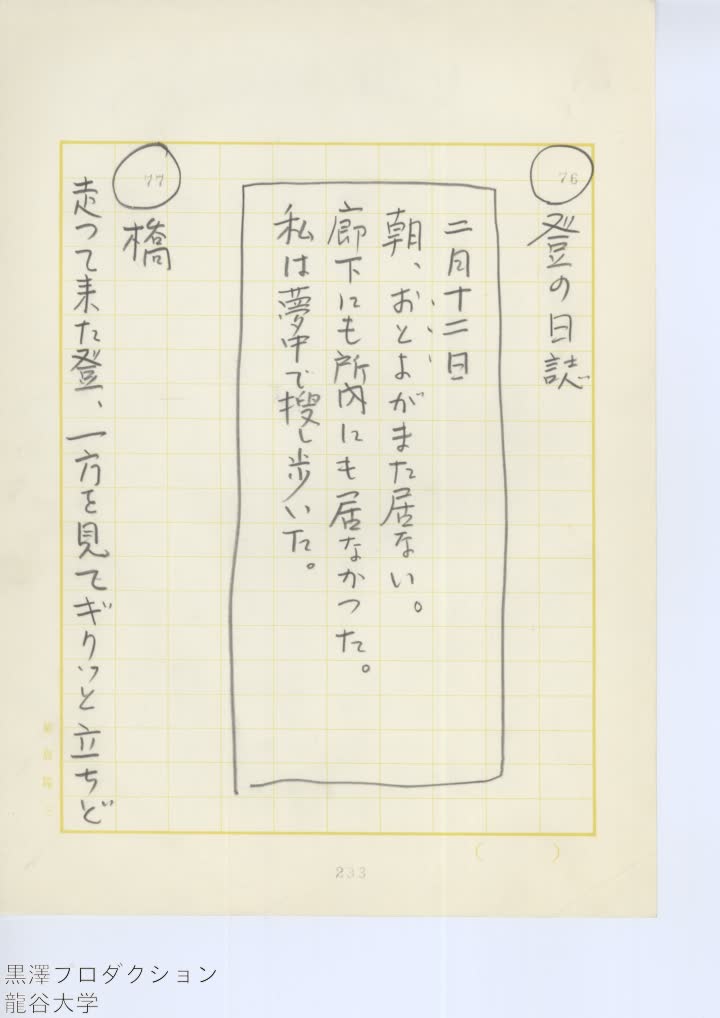 76
登の日誌
二月十二日
朝、おとよがまた居ない。
廊下にも所内にも居なかつた。
私は夢中で捜し歩いた。
77
橋
走つて来た登、一方を見てギクッと立ちど
233
黒澤プロダクション
龍谷大学